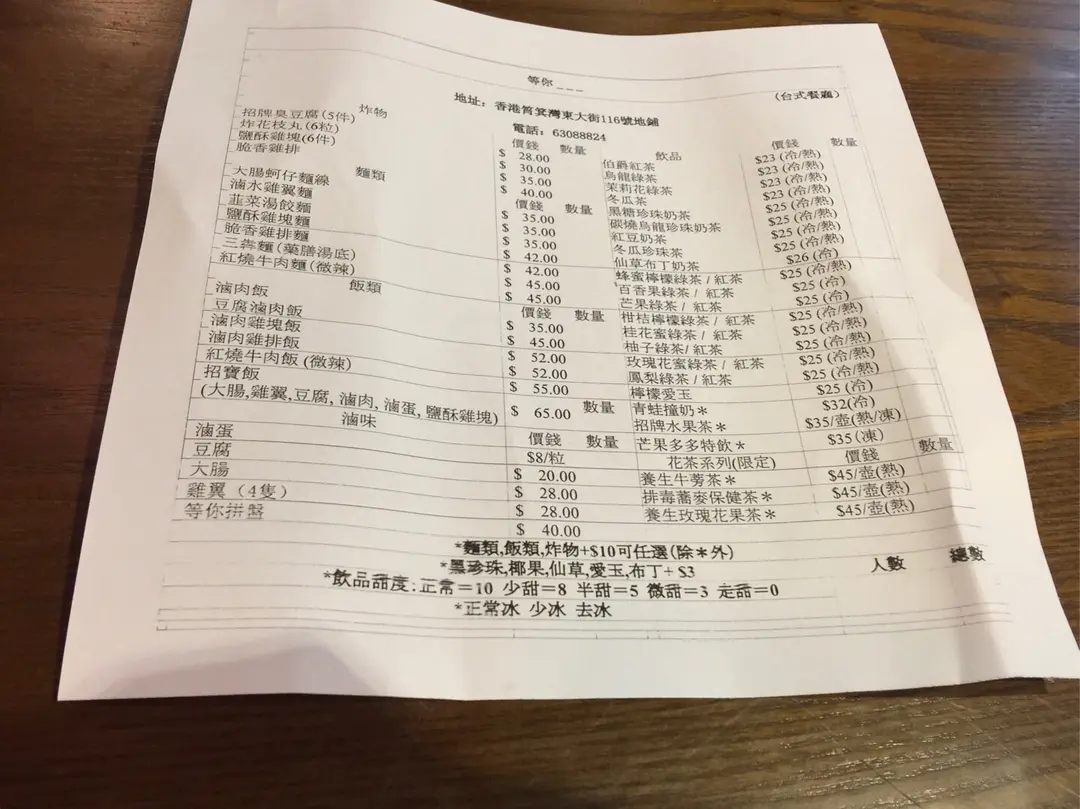 等你___
(台式餐廳)
地址：香港筲箕灣東大街116號地鋪
電話：63088824
炸物 價錢 數量
招牌臭豆腐(5件) $ 28.00
炸花枝丸(6粒) $ 30.00
鹽酥雞塊(6件) $ 35.00
脆香雞排 $ 40.00
麵類 價錢 數量
大腸蚵仔麵線 $ 35.00
滷水雞翼麵 $ 35.00
韭菜湯餃麵 $ 35.00
鹽酥雞塊麵 $ 42.00
脆香雞排麵 $ 42.00
三犇麵(藥膳湯底) $ 45.00
紅燒牛肉麵(微辣) $ 45.00
飯類 價錢 數量
滷肉飯 $ 35.00
豆腐滷肉飯 $ 45.00
滷肉雞塊飯 $ 52.00
滷肉雞排飯 $ 52.00
紅燒牛肉飯 (微辣) $ 55.00
招寶飯
(大腸,雞翼,豆腐, 滷肉, 滷蛋, 鹽酥雞塊) $ 65.00 數量
滷味 價錢 數量
滷蛋 $8/粒
豆腐 $ 20.00
大腸 $ 28.00
雞翼（4隻） $ 28.00
等你拼盤 $ 40.00
飲品 價錢 數量
伯爵紅茶 $23 (冷/熱)
烏龍綠茶 $23 (冷/熱)
茉莉花綠茶 $23 (冷/熱)
冬瓜茶 $23 (冷/熱)
黑糖珍珠奶茶 $25 (冷/熱)
碳燒烏龍珍珠奶茶 $25 (冷/熱)
紅豆奶茶 $25 (冷/熱)
冬瓜珍珠茶 $25 (冷/熱)
仙草布丁奶茶 $26 (冷)
蜂蜜檸檬綠茶 / 紅茶 $25 (冷/熱)
百香果綠茶 / 紅茶 $25 (冷)
芒果綠茶 / 紅茶 $25 (冷)
柑桔檸檬綠茶 / 紅茶 $25 (冷/熱)
桂花蜜綠茶 / 紅茶 $25 (冷/熱)
柚子綠茶/ 紅茶 $25 (冷/熱)
玫瑰花蜜綠茶 / 紅茶 $25 (冷/熱)
鳳梨綠茶 / 紅茶 $25 (冷/熱)
檸檬愛玉 $25 (冷)
青蛙撞奶＊ $32(冷)
招牌水果茶＊ $35/壺(熱/凍)
芒果多多特飲＊ $35 (凍)
花茶系列(限定) 價錢 數量
養生牛蒡茶＊ $45/壺(熱)
排毒蕎麥保健茶＊ $45/壺(熱)
養生玫瑰花果茶＊ $45/壺(熱)
*麵類,飯類,炸物+$10可任選(除＊外)
*黑珍珠,椰果,仙草,愛玉,布丁+ $3
人數 總數
*飲品甜度:正常＝10 少甜＝8 半甜＝5 微甜＝3 走甜＝0
*正常冰 少冰 去冰